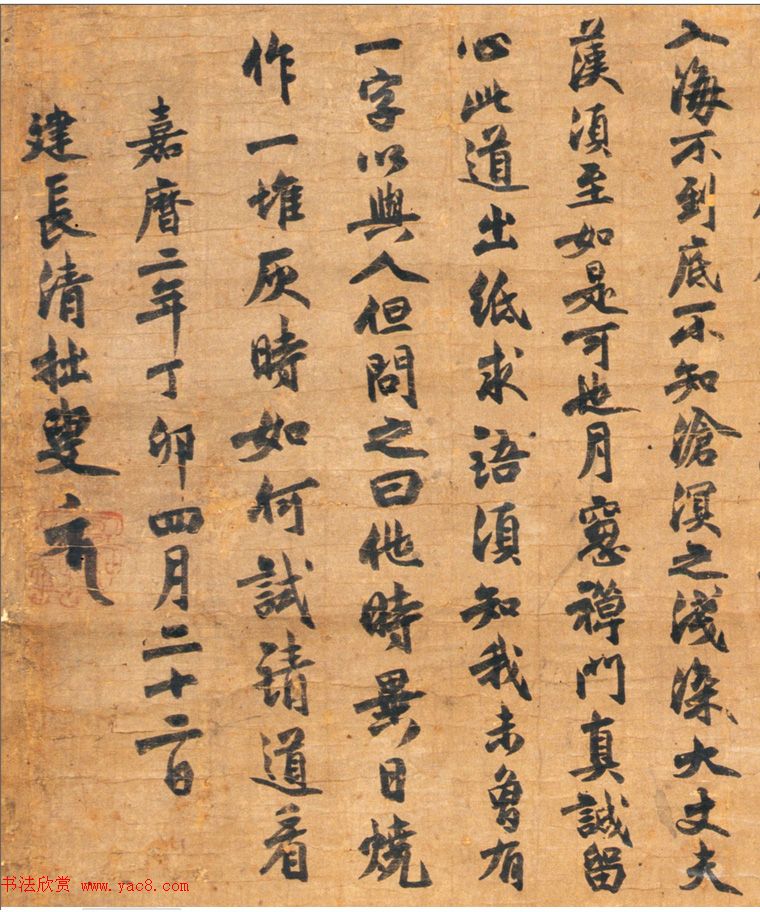 入海不到底不知滄溟之淺深大丈夫
漢須至如是可也月窓禪門真誠留
心此道出紙求語須知我未曾有
一字以與人但問之曰他時異日燒
作一堆灰時如何試請道看
嘉曆二年丁卯四月二十二日
建長清拙叟
书法欣赏 www.yac8.com